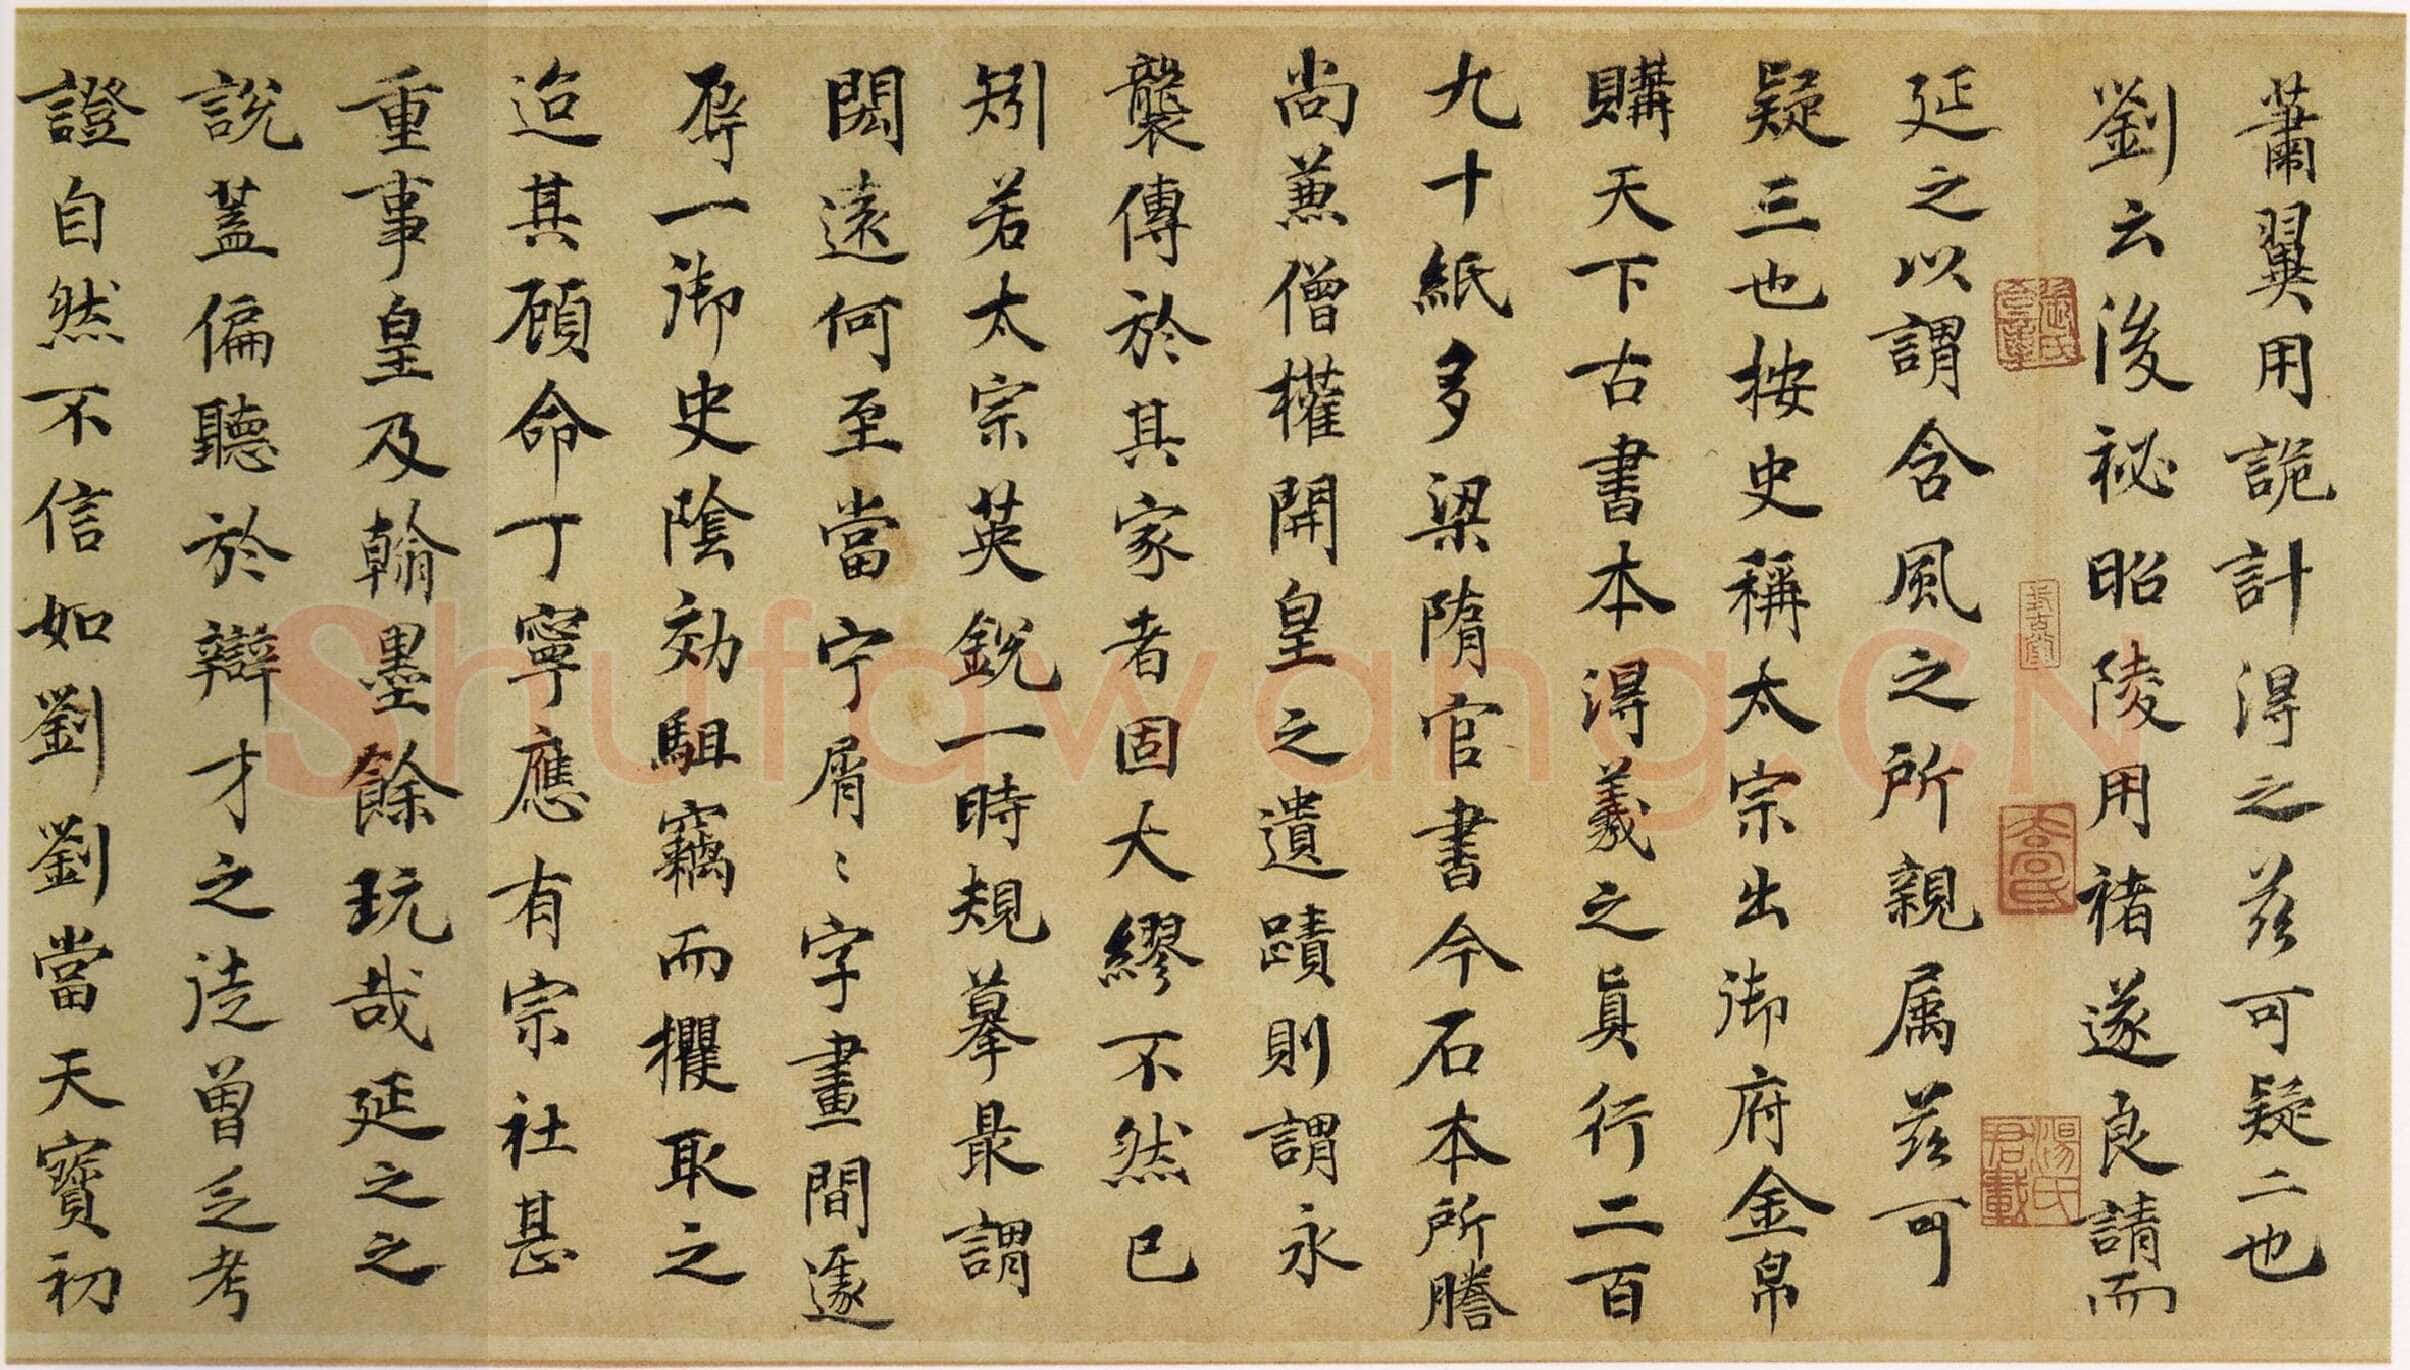 蕭翼用詭計得之茲可疑二也
劉云後祕昭陵用褚遂良請而
延之以謂含風之所親属茲可
疑三也按史稱太宗出御府金帛
購天下古書本得羲之真行二百
九十紙多梁隋官書今石本所謄
尚兼僧權開皇之遺蹟則謂永
襲傳於其家者固大繆不然已
矧若太宗英銳一時規摹最謂
閎遠何至當宁屑〻字畫間遽
辱一御史陰効駔竊而攫取之
迨其顧命丁寧應有宗社甚
重事皇及翰墨餘玩哉延之之
說蓋偏聽於辯才之徒曾乏考
證自然不信如劉劉當天寶初
Shufawang.CN